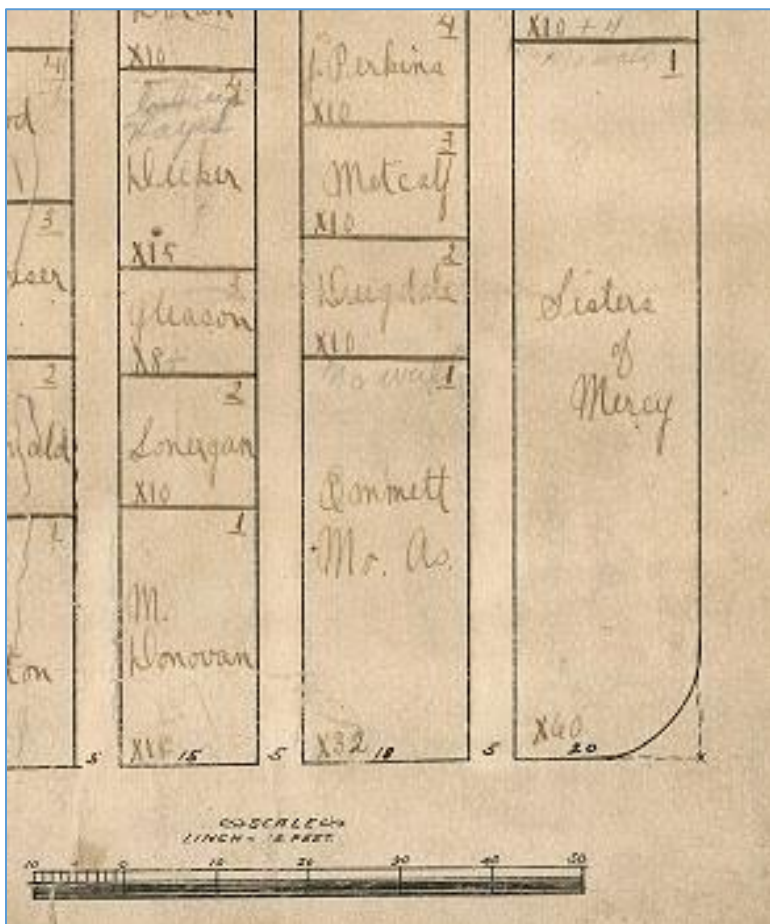 X10
4
Hayes
Decker
X15
3
Gleason
X8+
2
Lonergan
X10
1
M.
Donovan
15
5
4
3
2
1
5
4
J. Perkins
X10
3
Metcalf
X10
2
Dugdale
X10
No walk
1
Emmett
Mo. As.
X32
18
5
X10 + 4
1
Sisters
of
Mercy
X60
20
SCALE
1 INCH = 12 FEET
10
5
0
10
20
30
40
50